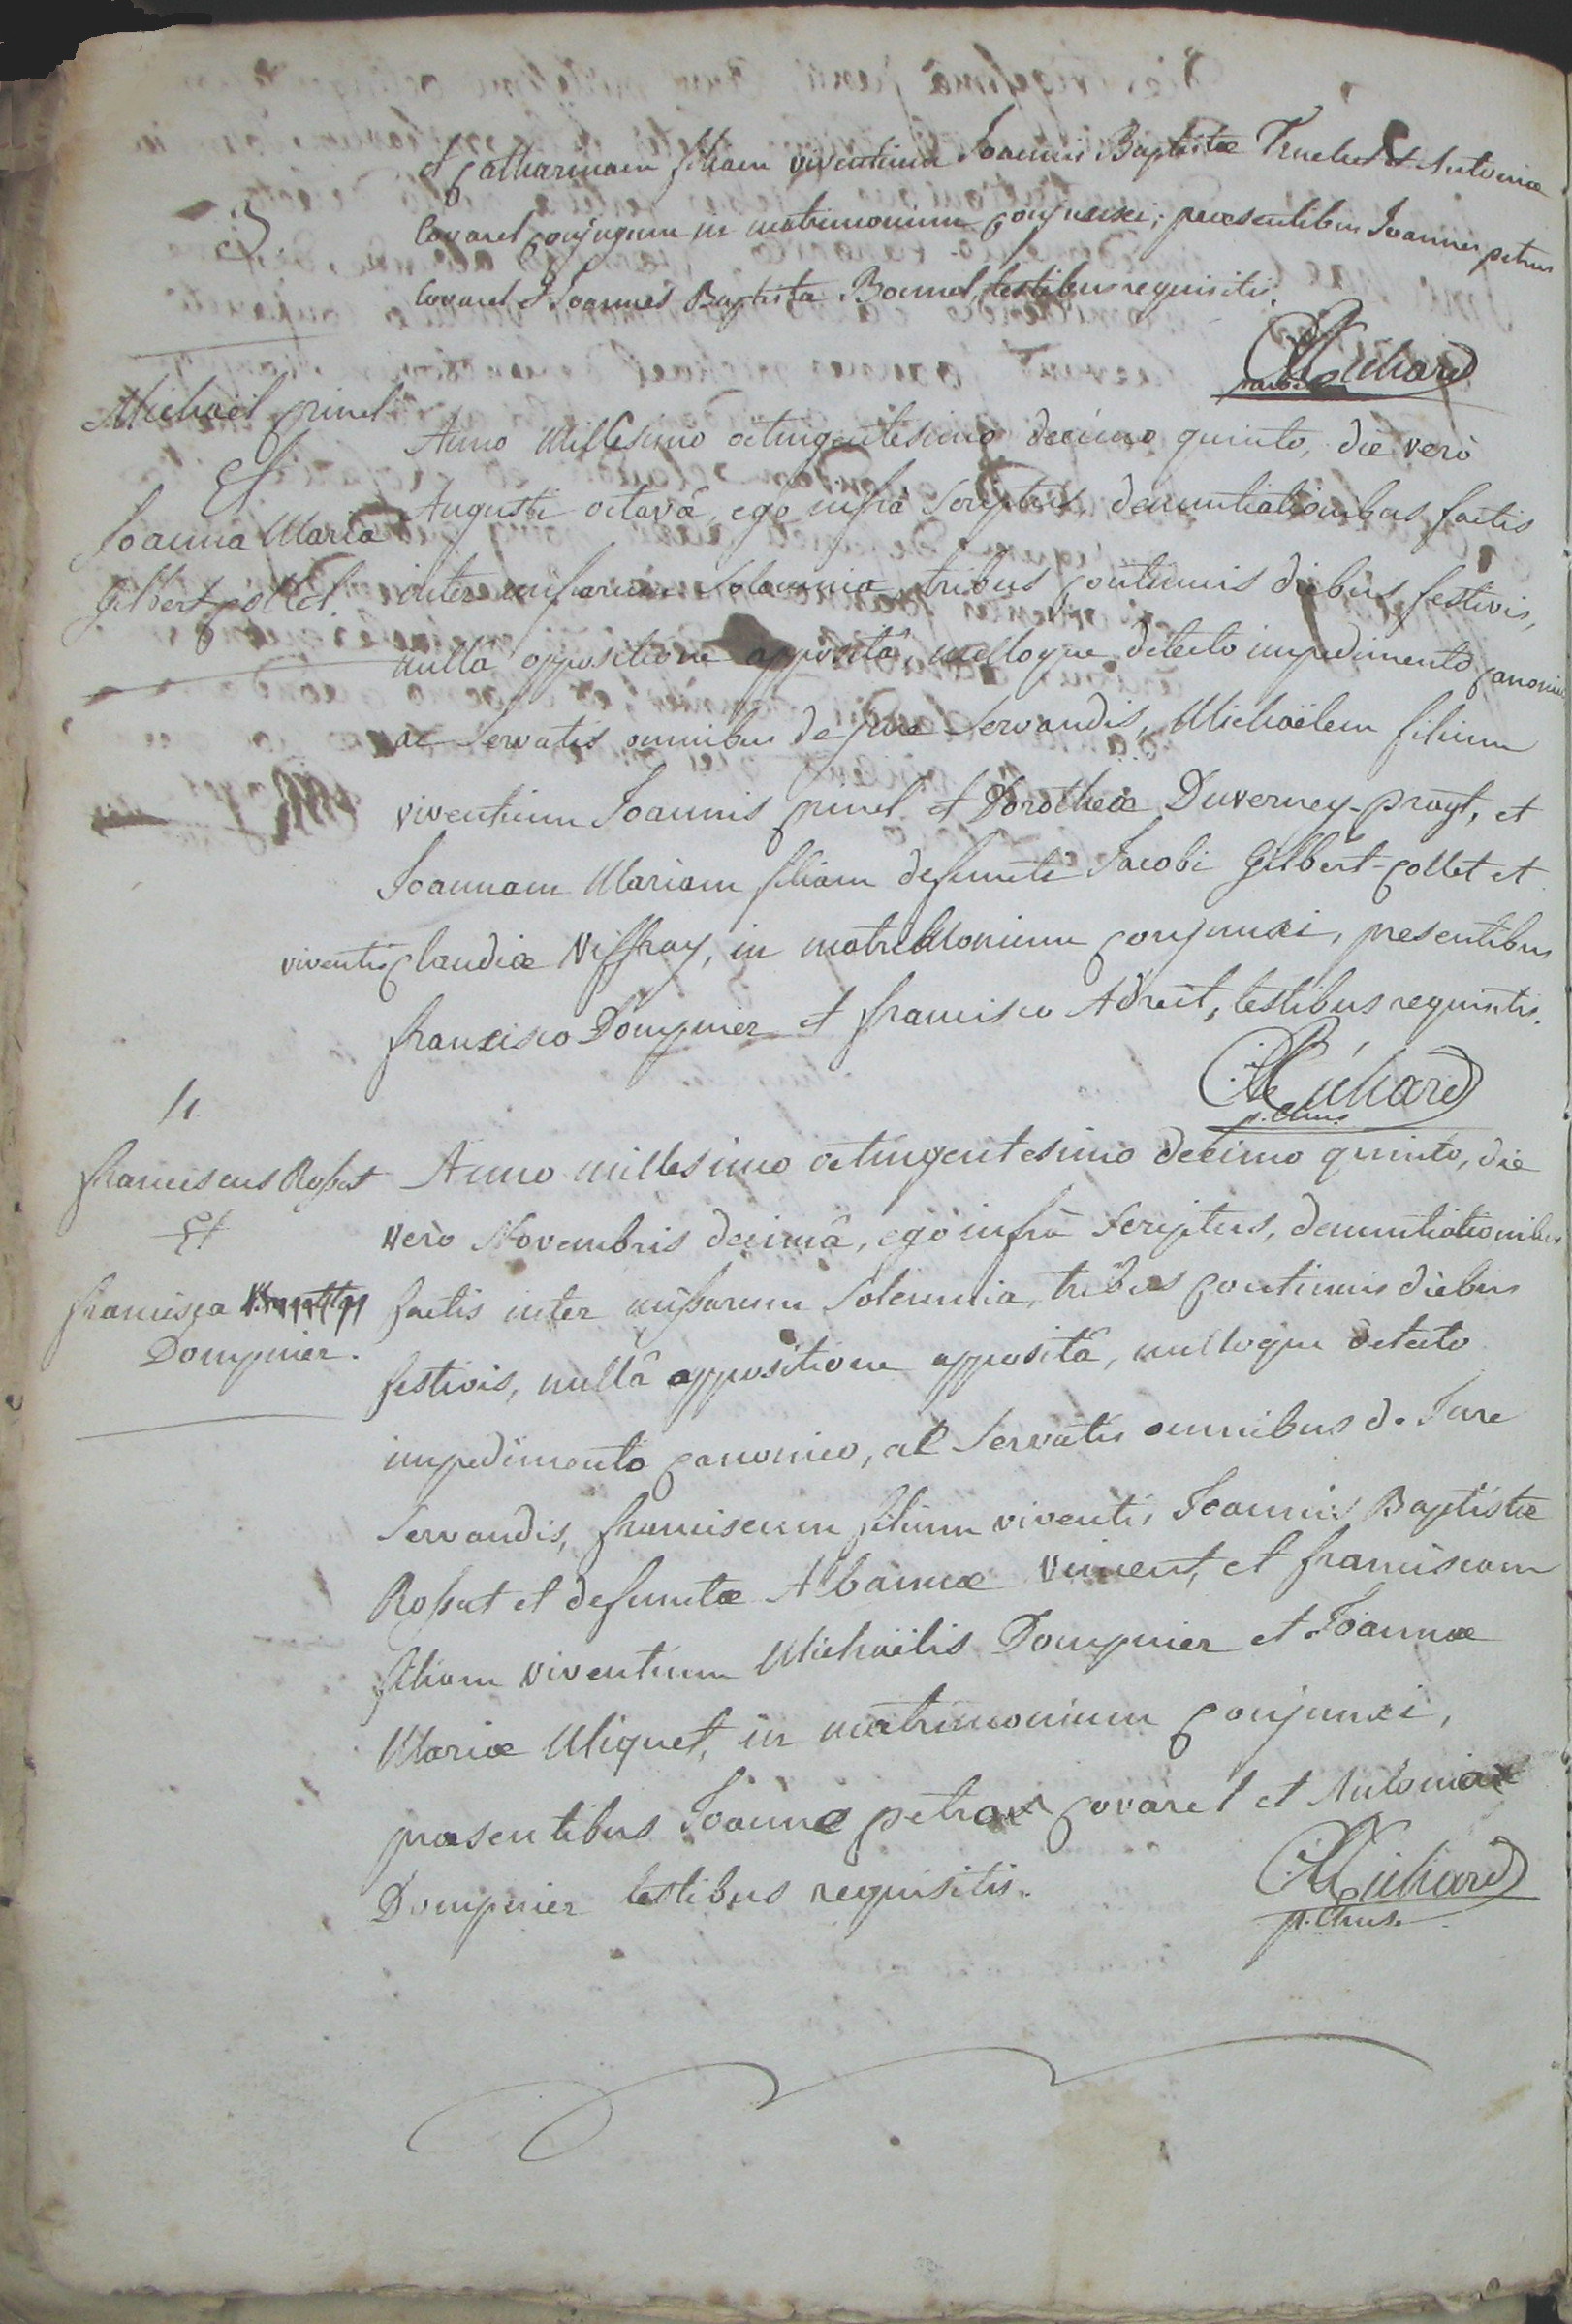 et Catharinam filiam viventium Joannis Baptistæ Truchet et Antoniæ
Covarel conjugum in matrimonium conjunxi; præsentibus Joannes petrus
Covarel & Joannes Baptista Bonnel, testibus requisitis.
Richard
3.
Michaël pinel
Et
Joanna Maria
Gilbert Collet.
Anno Millesimo octingentesimo decimo quinto, die verò
Augusti octavâ, ego infrà Scriptus, denuntiationibus factis
inter missarum Solemnia, tribus Continuis diebus festivis,
nullâ oppositione appositâ, nulloque detecto impedimento Canonico
ac Servatis omnibus de jure Servandis, Michaëlem filium
viventium Joannis pinel et Dorotheæ Duverney-prayt, et
Joannam Mariam filiam defuncti Jacobi Gilbert-Collet et
viventis Claudiæ Viffray, in matriMonium Conjunxi, presentibus
francisco Dompnier et francisco Adreit, testibus requisitis.
Richard
p. Chus.
4.
franciscus Rossat
Et
francisca
Dompnier.
Anno millesimo octingentesimo decimo quinto, die
verò Novembris decimâ, ego infrà Scriptus, denuntiationibus
factis inter missarum Solemnia, tribus Continuis diebus
festivis, nullâ oppositione appositâ, nulloque detecto
impedimento Canonico, ac Servatis omnibus de Jure
Servandis, franciscum filium viventis Joannis Baptistæ
Rossat et defunctæ Albannæ Vincent, et franciscam
filiam viventium Michaëlis Dompnier et Joannæ
Mariæ Miquet, in matrimonium Conjunxi,
præsentibus Joanne petro Covarel et Antonio
Dompnier testibus requisitis.
Richard
p. Chus.